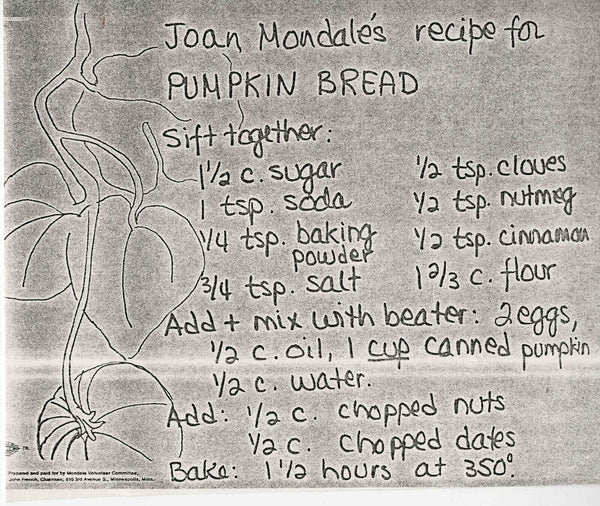 Joan Mondale's recipe for
PUMPKIN BREAD
Sift together:
1 1/2 c. sugar 1/2 tsp. cloves
1 tsp. soda 1/2 tsp. nutmeg
1/4 tsp. baking powder 1/2 tsp. cinnamon
3/4 tsp. salt 1 2/3 c. flour
Add + mix with beater: 2 eggs,
1/2 c. oil, 1 cup canned pumpkin
1/2 c. water.
Add: 1/2 c. chopped nuts
1/2 c. chopped dates
Bake: 1 1/2 hours at 350°.
Prepared and paid for by Mondale Volunteer Committee,
John French, Chairman, 810 3rd Avenue S., Minneapolis, Minn.